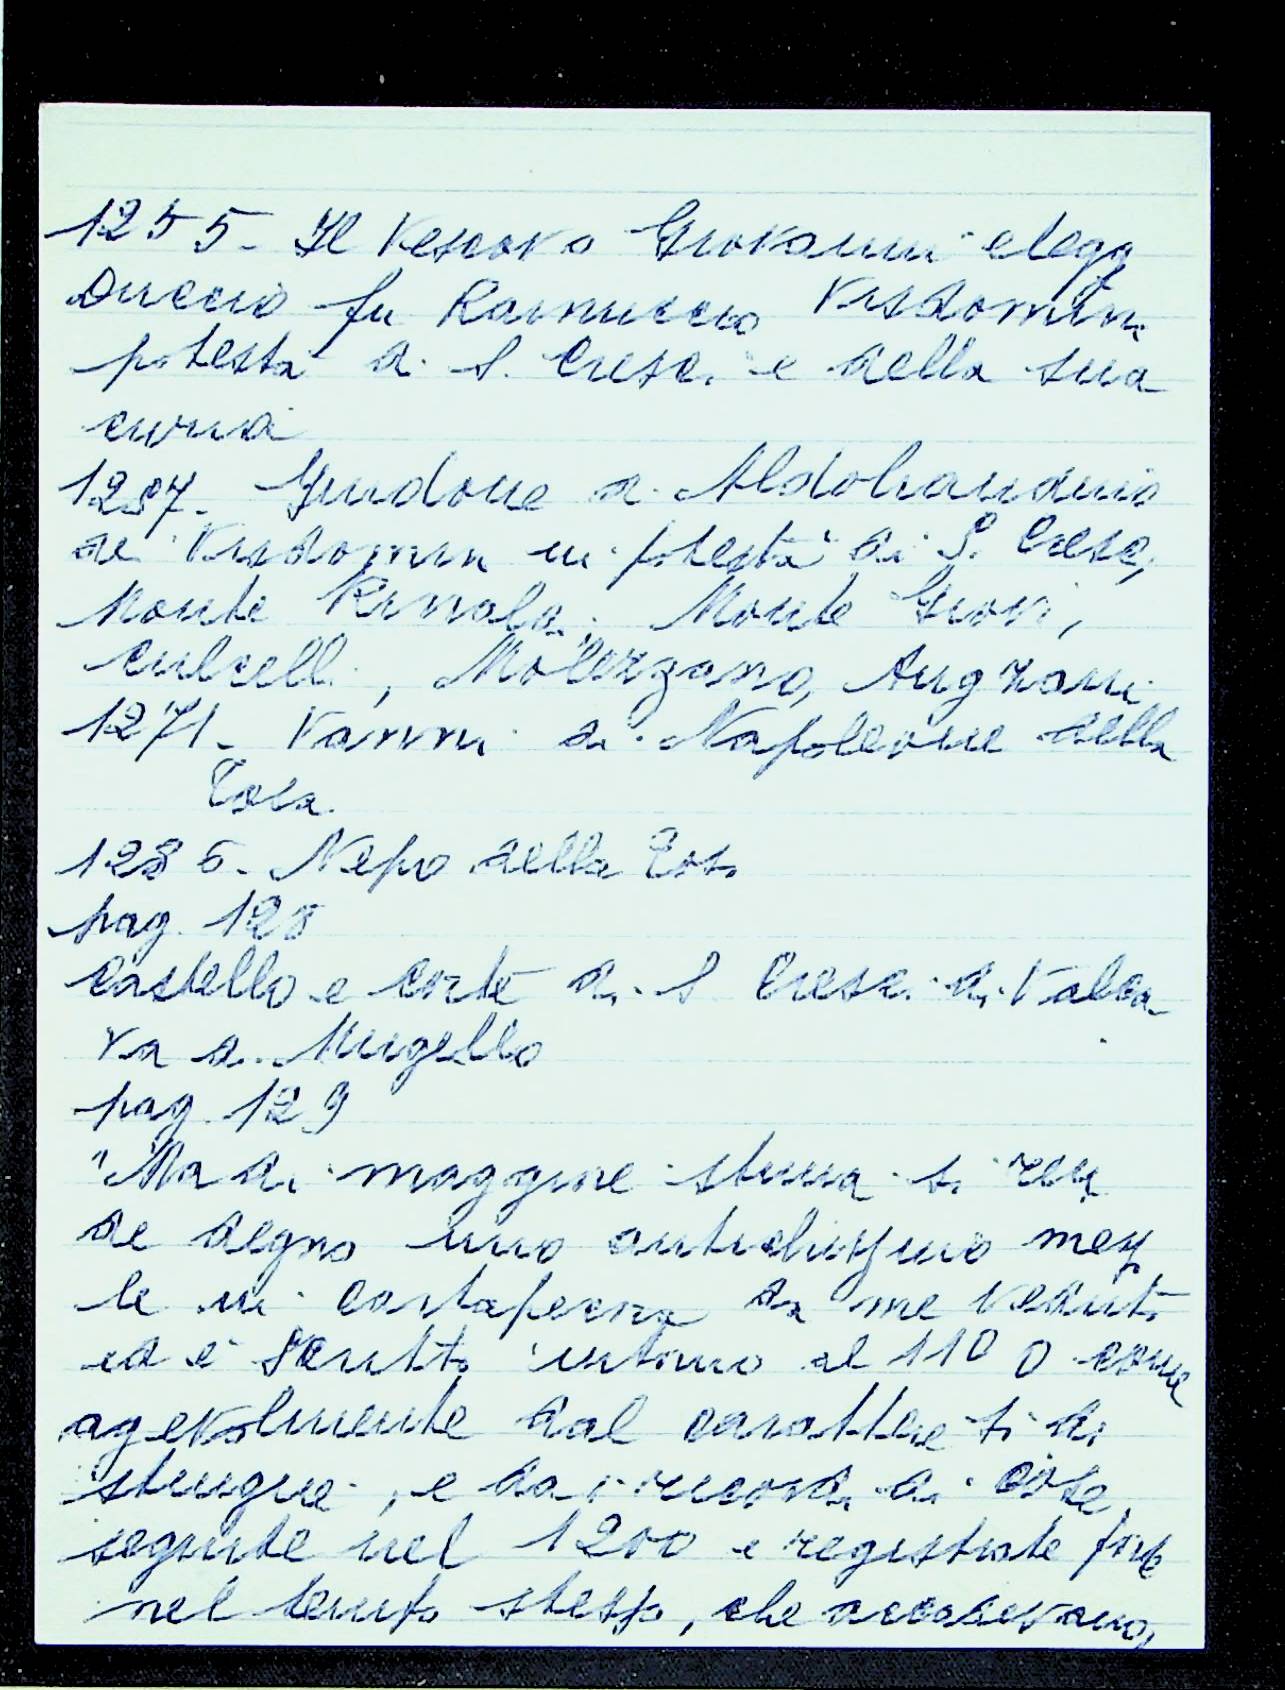 1255- Il Vescovo Giovanni elegg
Duccio fu Rainuccio Visdomini
potestà di S. Cresci e della sua
curia
1287- Guidone di Aldobrandino
dei Visdomini potestà di S. Cresci,
Monte Rinaldi, Monte Giovi,
Molezzano,
1271- Vanni di Napoleone della
Tosa
1286- Nepo della Tosa
pag. 128
Castello e corte di S Cresci di Valca
va di Mugello
pag. 129
"Ma di maggiore stima si ren
de degno uno antichissimo mes
le in cartapecora da me veduto
ed è scritto intorno al 1100 come
agevolmente dal carattere si di
stingue, e dai ricordi di cose
seguite nel 1200 e registrate forse
nel tempo stesso, che accadevano,